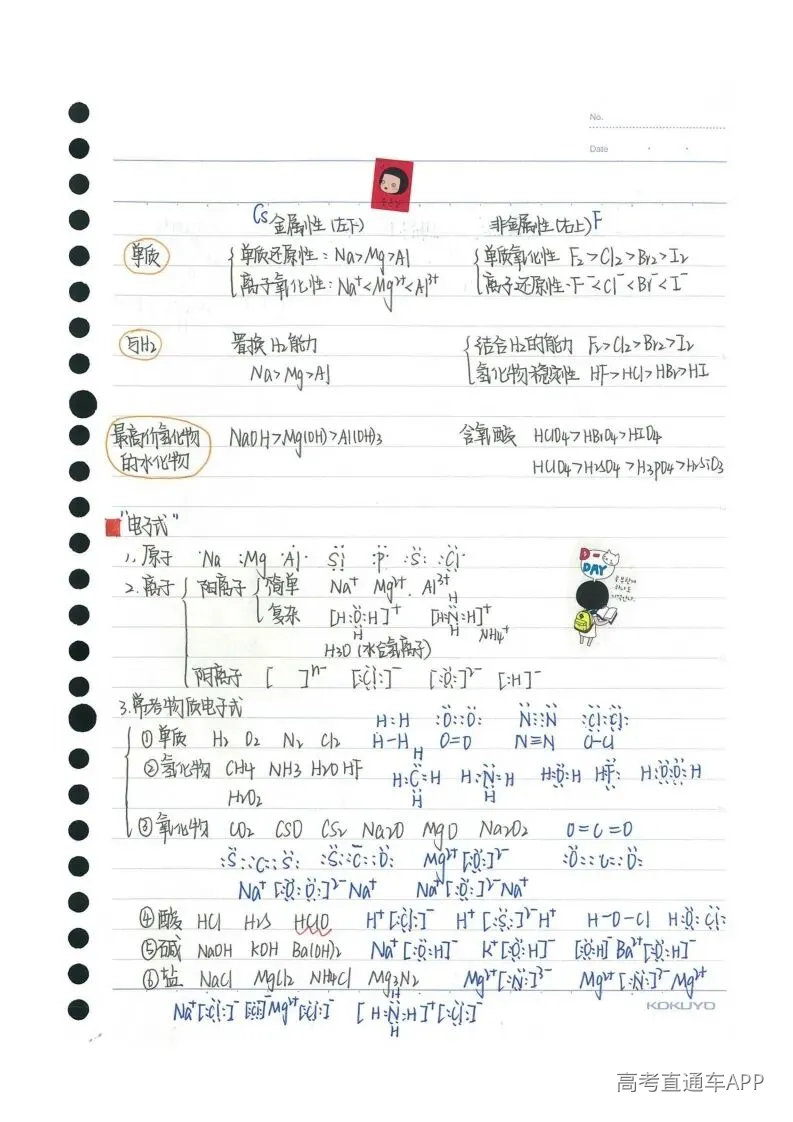 No.
Date
Cs 金属性(左下) 非金属性(右上)F
单质 单质还原性:Na>Mg>Al 单质氧化性 F₂>Cl₂>Br₂>I₂
离子氧化性:Na⁺<Mg²⁺<Al³⁺ 离子还原性·F⁻<Cl⁻<Br⁻<I⁻
与H₂ 置换H₂能力 结合H₂的能力 F₂>Cl₂>Br₂>I₂
Na>Mg>Al 氢化物稳定性 HF>HCl>HBr>HI
最高价氧化物 NaOH>Mg(OH)>Al(OH)₃ 含氧酸 HClO₄>HBrO₄>HIO₄
的水化物 HClO₄>H₂SO₄>H₃PO₄>H₂SiO₃
"电子式"
1、原子 ·Na :Mg Al Si P S Cl
D-
DAY
2.离子 阳离子 简单 Na⁺ Mg²⁺. Al³⁺
复杂 [H:O:H]⁺ [H:N:H]⁺
H H H
NH₄⁺
H₃O(水合氢离子)
阳离子 [ ]ⁿ⁻ [:Cl:]⁻ [:O:]²⁻ [:H]⁻
3.常考物质电子式
H:H :O::O: N⋮⋮N :Cl:Cl:
①单质 H₂ O₂ N₂ Cl₂ H-H O=O N≡N Cl-Cl
②氢化物 CH₄ NH₃ H₂O HF H:C:H H:N:H H:O:H H:F: H:O:O:H
H H H
H₂O₂
③氧化物 CO₂ CSO CS₂ Na₂O MgO Na₂O₂ O=C=O
:S::C::S: :S::C::O: Mg²⁺[:O:]²⁻ :O::C::O:
Na⁺[:O:O:]²⁻Na⁺ Na⁺[:O:]²⁻Na⁺
④酸 HCl H₂S HClO H⁺[:Cl:]⁻ H⁺[:S:]²⁻H⁺ H-O-Cl H:O:Cl:
⑤碱 NaOH KOH Ba(OH)₂ Na⁺[:O:H]⁻ K⁺[:O:H]⁻ [:O:H]⁻Ba²⁺[:O:H]⁻
⑥盐 NaCl MgCl₂ NH₄Cl Mg₃N₂ Mg²⁺[:N:]³⁻ Mg²⁺[:N:]³⁻Mg²⁺
KOKUYO
Na⁺[:Cl:]⁻ [:Cl:]⁻Mg²⁺[:Cl:]⁻ [H:N:H]⁺[:Cl:]⁻
H H
高考直通车APP